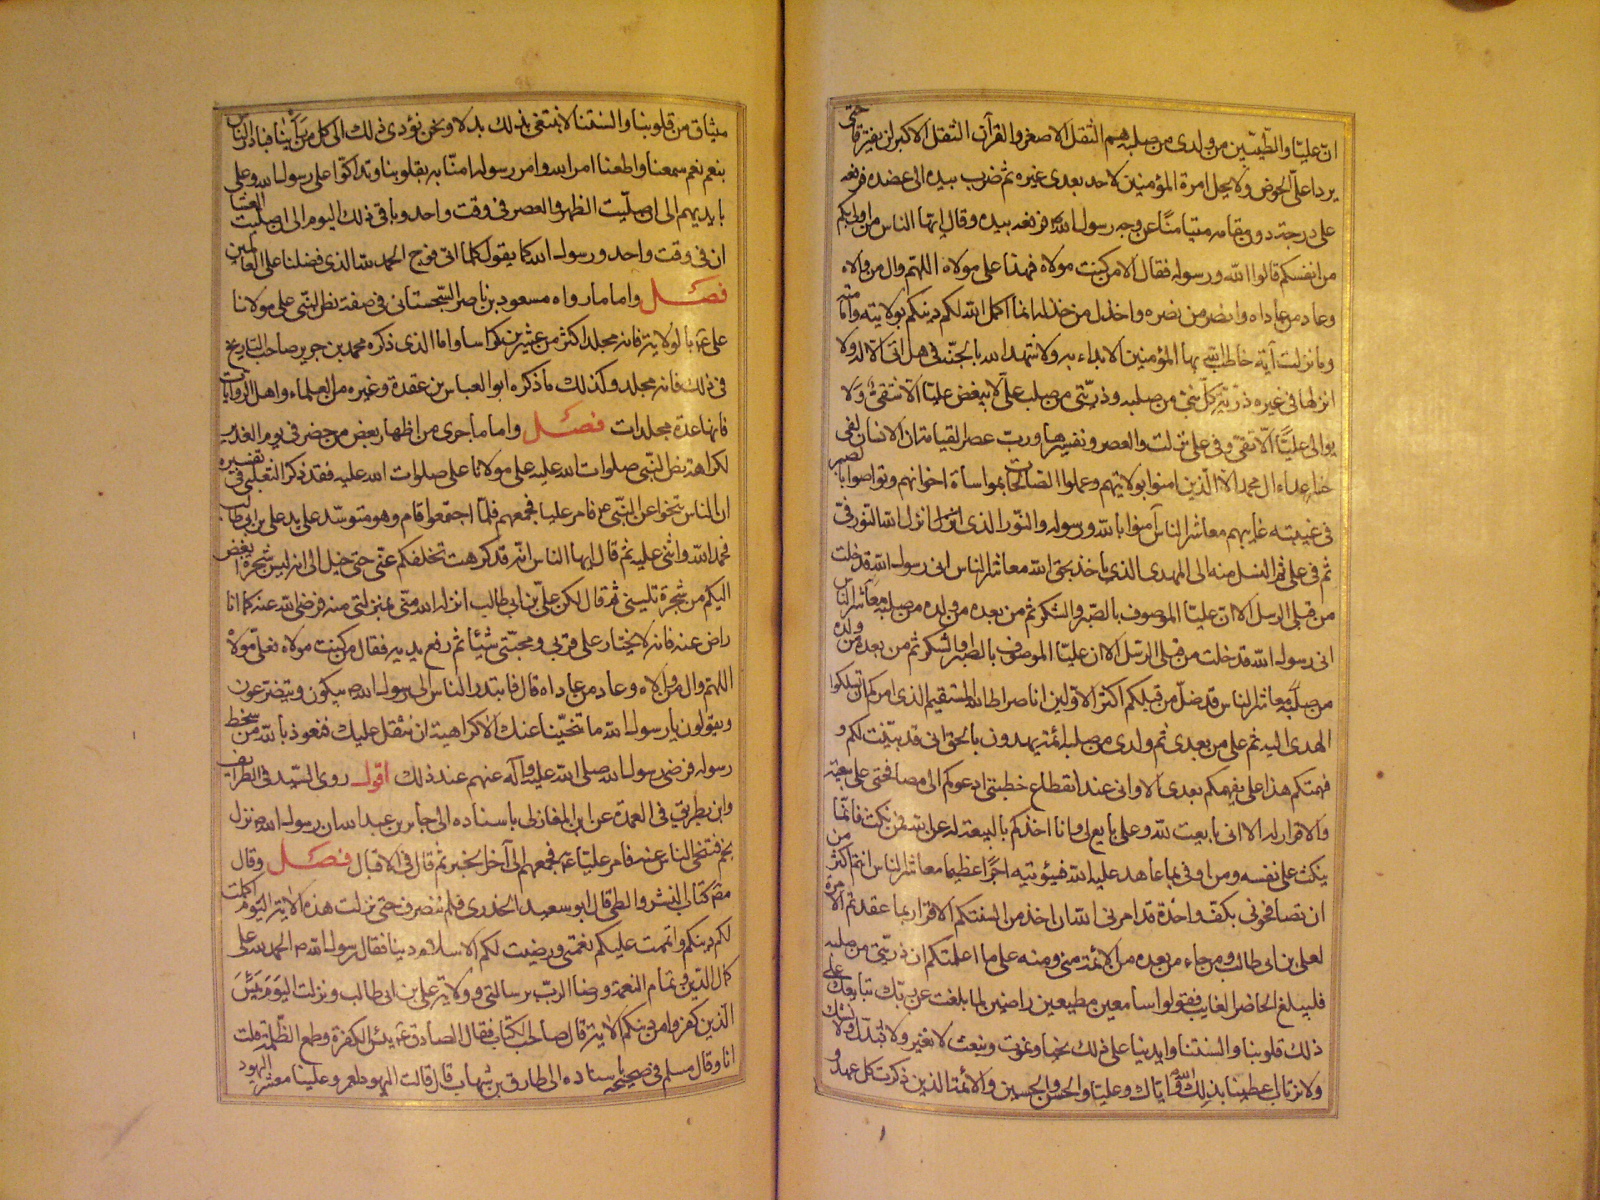 انّ عليّا والطّيّبين من ولدى من صلبه هم الثقل الاصغر والقرآن الثقل الاكبر لن يفترقا حتّى
يردا علىّ الحوض ولا يحل امرة المؤمنين لاحد بعدى غيره ثم ضرب بيده الى عضده فرفعه
على درجة دون مقامه متيامنًا عن وجه رسول الله فرفعه بيده وقال ايها الناس من اولى بكم
من انفسكم قالوا الله ورسوله فقال الا من كنت مولاه فهذا على مولاه اللهم وال من والاه
وعاد من عاداه وانصر من نصره واخذل من خذله انما اكمل الله لكم دينكم بولايته وامامته
وما نزلت آية خاطب الله بها المؤمنين الا بداء به ولا شهد الله بالجنة فى هل اتى الا له ولا
انزلها فى غيره ذرية كل نبى من صلبه وذريتى من صلب على لا يبغض عليا الا شقى ولا
يوالى عليّا الّا تقى وفى على نزلت والعصر وتفسيرها ورب عصر القيامة ان الانسان لفى
خسر اعداء ال محمد الا الذين امنوا بولايتهم وعملوا الصالحات بمواساة اخوانهم وتواصوا بالصبر
فى غيبة غايبهم معاشر الناس آمنوا بالله ورسوله والنور الذى انزل انزل الله النور فى
ثم فى على ثم النسل منه الى المهدى الذى ياخذ بحق الله معاشر الناس انى رسول الله قد خلت
من قبلى الرسل الا ان عليّا الموصوف بالصبر والشكر ثم من بعده من ولده من صلبه معاشر الناس
انى رسول الله قد خلت من قبلى الرسل الا ان عليّا الموصوف بالصبر والشكر ثم من بعده من ولده
من صلبه معاشر الناس قد ضل من قبلكم اكثر الاولين انا صراط الله المستقيم الذى امركم ان تسلكوا
الهدى اليه ثم على من بعدى ثم ولدى من صلبه ائمة يهدون بالحق انى قد بيّنت لكم و
فهمتكم هذا على يفهمكم بعدى الا وانى عند انقطاع خطبتى ادعوكم الى مصافحتى على بيعته
والاقرار له الا انى بايعت لله وعلى بايع لى وانا اخذكم بالبيعة له عن الله فمن نكث فانّما
ينكث على نفسه ومن اوفى بما عاهد عليه الله فسيؤتيه اجرًا عظيما معاشر الناس انتم اكثر من
ان تصافحونى بكف واحدة قد امرنى الله ان اخذ من السنتكم الاقرار بما عقدتم الامرة
لعلى بن ابى طالب ومن جاء من بعده من الائمة منى ومنه على ما اعلمتكم ان ذريتى من صلبه
فليبلغ الحاضر الغايب فقولوا سامعين مطيعين راضين لما بلغت عن ربك نبايعك على
ذلك قلوبنا والسنتنا وايدينا على ذلك نحيا ونموت ونبعث لا نغير ولا نبدّل ولا نشك
ولا نرتاب اعطينا بذلك الله واياك وعليا والحسن والحسين والائمة الذين ذكرت كل عهد و
ميثاق من قلوبنا والسنتنا لا نبتغى بذلك بدلا ونحن نؤدى ذلك الى كل من رأينا فبادر الناس
بنعم نعم سمعنا واطعنا امر الله وامر رسوله امنّا به بقلوبنا وتداكّوا على رسول الله وعلى
بايديهم الى ان صلّيت الظهر والعصر فى وقت واحد وباقى ذلك اليوم الى ان صلّيت العشا
ان فى وقت واحد ورسول الله كما يقول كلما اتى فوج الحمد لله الذى فضلنا على العالمين
فصل واما ما رواه مسعود بن ناصر السجستانى فى صفة نص النبى على مولانا
على ع بالولاية فانه مجلد اكثر من عشرين كراسا واما الذى ذكره محمد بن جرير صاحب التاريخ
فى ذلك فانه مجلد وكذلك ما ذكره ابو العباس بن عقدة وغيره من العلماء واهل الروايات
فانها عدة مجلدات فصل واما ما جرى من اظهار بعض من حضر فى يوم الغدير
لكراهة نص النبى صلوات الله عليه على مولانا على صلوات الله عليه فقد ذكر الثعلبى فى تفسيره
ان الناس تنحّوا عن النّبى ص فامر عليا فجمعهم فلمّا اجتمعوا قام وهو متوسّد على يد على بن ابى طالب
فحمد الله واثنى عليه ثم قال ايها الناس انّه قد كرهت تخلفكم عنّى حتى خيل الى انه ليس شجرة ابغض
اليكم من شجرة تلينى ثم قال لكن على بن ابى طالب انزله الله منّى بمنزلتى منه فرضى الله عنه كما انا
راض عنه فانه لا يختار على قربى ومحبّتى شيئا ثم رفع يديه فقال من كنت مولاه فعلىّ مولاه
اللهم وال من والاه وعاد من عاداه قال فابتدر الناس الى رسول الله ص يبكون ويتضرعون
ويقولون يا رسول الله ما تنحّينا عنك الا كراهية ان نثقل عليك فنعوذ بالله من سخط
رسوله فرضى رسول الله صلى الله عليه وآله عنهم عند ذلك اقول روى السيّد فى الطرائف
وابن بطريق فى العمدة عن ابن المغازلى باسناده الى جابر بن عبد الله ان رسول الله ص نزل
بخم فتنحى الناس عنه فامر عليّا ع فجمعهم الى آخر الخبر ثم قال فى الاقبال فصل وقال
مص كتاب النشر والطى قال ابو سعيد الخدرى فلم ننصرف حتى نزلت هذه الاية اليوم اكملت
لكم دينكم واتممت عليكم نعمتى ورضيت لكم الاسلام دينا فقال رسول الله ص الحمد لله على
كمال الدين وتمام النعمة ورضا الرب برسالتى وولاية على بن ابى طالب ونزلت اليوم يئس
الّذين كفروا من دينكم الاية قال صاحب الكتاب فقال الصادق ع يئس الكفرة وطمع الظّلمة قلت
انا وقال مسلم فى صحيحه باسناده الى طارق بن شهاب قال قالت اليهود لعمر لو علينا معشر اليهود